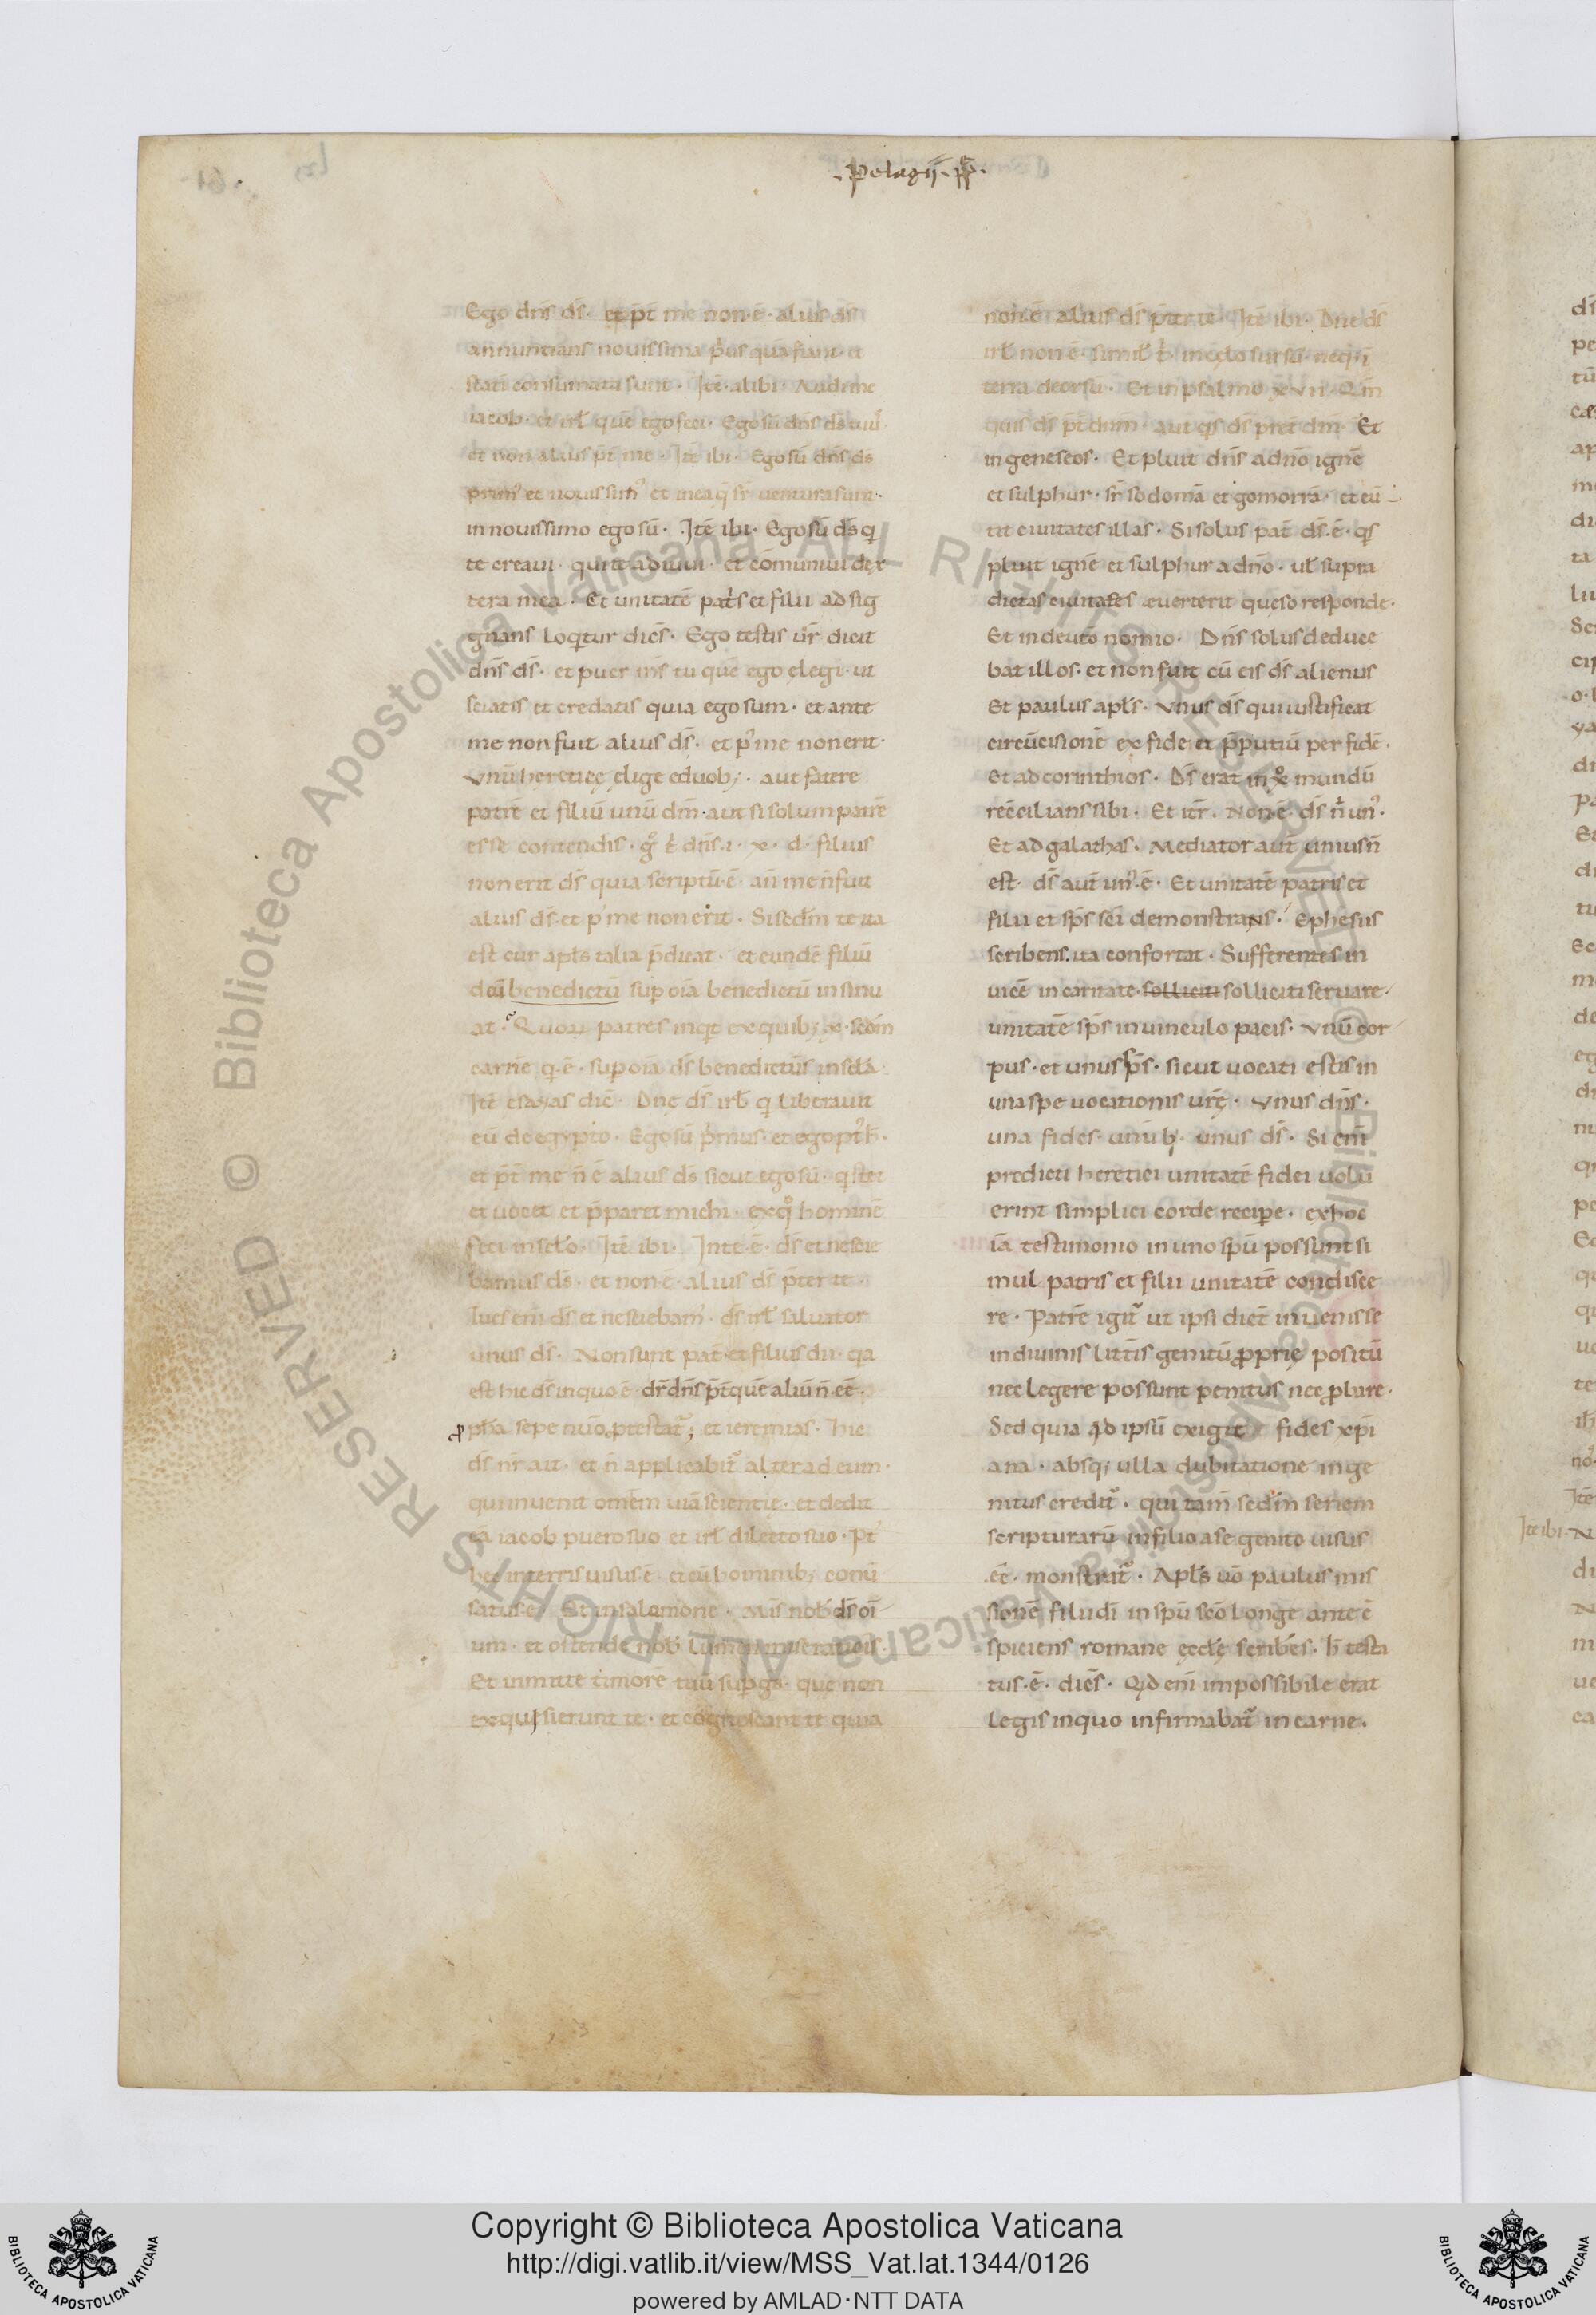 .pelagii. pp.
Ego dns ds. et pt me non.e. alius ds
annuntians nouissima prius qua fiant. et
stati consumata sunt. Ite. alibi. Audi me
iacob. et irl que ego feci. Ego su dns ds tuus.
et non alius pt me. Ite ibi. Ego su dns ds
prim' et nouissim' et in ea q sr uentura sunt.
in nouissimo ego su. Ite ibi. Ego su ds q
te creaui. qui te adiuui. et comuniui dex
tera mea. Et unitate patris et filii ad sig
gnans loqtur dices. Ego testis ur dicit
dns ds. et puer ms tu que ego elegi. ut
sciatis et credatis quia ego sum. et ante
me non fuit alius ds. et p' me non erit.
Vnu heretice elige eduob;. aut fatere
patre et filiu unu dm. aut si solum patre
esse contendis. g t dns.i.x.d. filius
non erit ds quia scriptu.e. an me n fuit
alius ds. et p' me non erit. Si sedm te ita
est cur apls talia pdicat. et eunde filiu
dcu benedictu sup oia benedictu insinu
at. Quoru patres inqt ex quib; x. sedm
carne q.e. sup oia ds benedictus in scla.
Ite esayas dic. Dne ds irl q liberauit
eu de egypto. Ego su pmus. et ego pt h.
et pt me n e alius ds sicut ego su. q stet
et uocet et pparet michi. ex q homine
feci in sclo. Ite ibi. In te.e. ds et nescie
bamus ds. et non.e. alius ds pter te.
Tu es eni ds et nesciebam'. ds irl saluator
unus ds. Non sunt pat et filius dii. qa
est hic ds in quo e dr dns pt que aliu n ee.
ppha sepe nuo ptestat; et ieremias. hic
ds nr ait. et n applicabit alter ad eum.
qui inuenit omem uia scientie. et dedit
ea iacob puero suo et irl dilecto suo. Pt'
hec in terris uisus e. et cu hominib; conu
satus e. Et in salomone. Mis nob ds oi
um. et ostende nob lumen miserationis.
Et inmitte timore tuu sup gs. que non
exquisierunt te. et cognoscant te quia
non.e alius ds pter te. Ite ibi. Dne ds
irl non e. simil t. in celo sursu. neq; i
terra deorsu. Et in psalmo xvii. Qm
quis ds pt dnm. aut qs ds pret dm. Et
in geneseos. Et pluit dns a dno igne
et sulphur. sr sodoma et gomorra. et eu
tit ciuitates illas. Si solus pat ds.e. qs
pluit igne et sulphur a dno. ul supra
dictas ciuitates euerterit queso responde.
Et in deuto nomio. Dns solus deduce
bat illos. et non fuit cu eis ds alienus
Et paulus apls. Vnus ds qui iustificat
circucisione ex fide et pputiu per fide.
Et ad corinthios. Ds erat in xo mundu
reccilians sibi. Et itr. Non e. ds n un'.
Et ad galathas. Mediator aut unius n
est. ds aut un'.e. Et unitate patris et
filii et sps sci demonstrans. Ephesiis
scribens. ita confortat. Sufferentes in
uice in caritate. solliciti solliciti seruare
unitate sps in uinculo pacis. Vnu cor
pus. et unus sps. sicut uocati estis in
una spe uocationis ure. Vnus dns.
una fides. unu b. unus ds. Si eni
predicti heretici unitate fidei uolu
erint simplici corde recipe. ex hoc
ia testimonio in uno spu possunt si
mul patris et filii unitate condisce
re. Patre igit ut ipsi dict inuenisse
in diuinis littis genitu pprie positu
nec legere possunt penitus nec plare.
Sed quia id ipsu exigit fides xpi
ana. absq; ulla dubitatione inge
nitus credit. qui tam sedm seriem
scripturaru in filio a se genito uisus
.ee. monstrat. Apls uo paulus mis
sione filii di in spu sco longe ante e
spiciens romane eccle scribes. h testa
tus.e. dices. Qd eni impossibile erat
legis in quo infirmabat in carne.
Ite ibi. N
Copyright © Biblioteca Apostolica Vaticana
http://digi.vatlib.it/view/MSS_Vat.lat.1344/0126
powered by AMLAD·NTT DATA
BIBLIOTECA APOSTOLICA VATICANA
BIBLIOTECA APOSTOLICA VATICANA
Biblioteca Apostolica Vaticana ALL RIGHTS RESERVED ©
Biblioteca Apostolica Vaticana ALL RIGHTS RESERVED ©